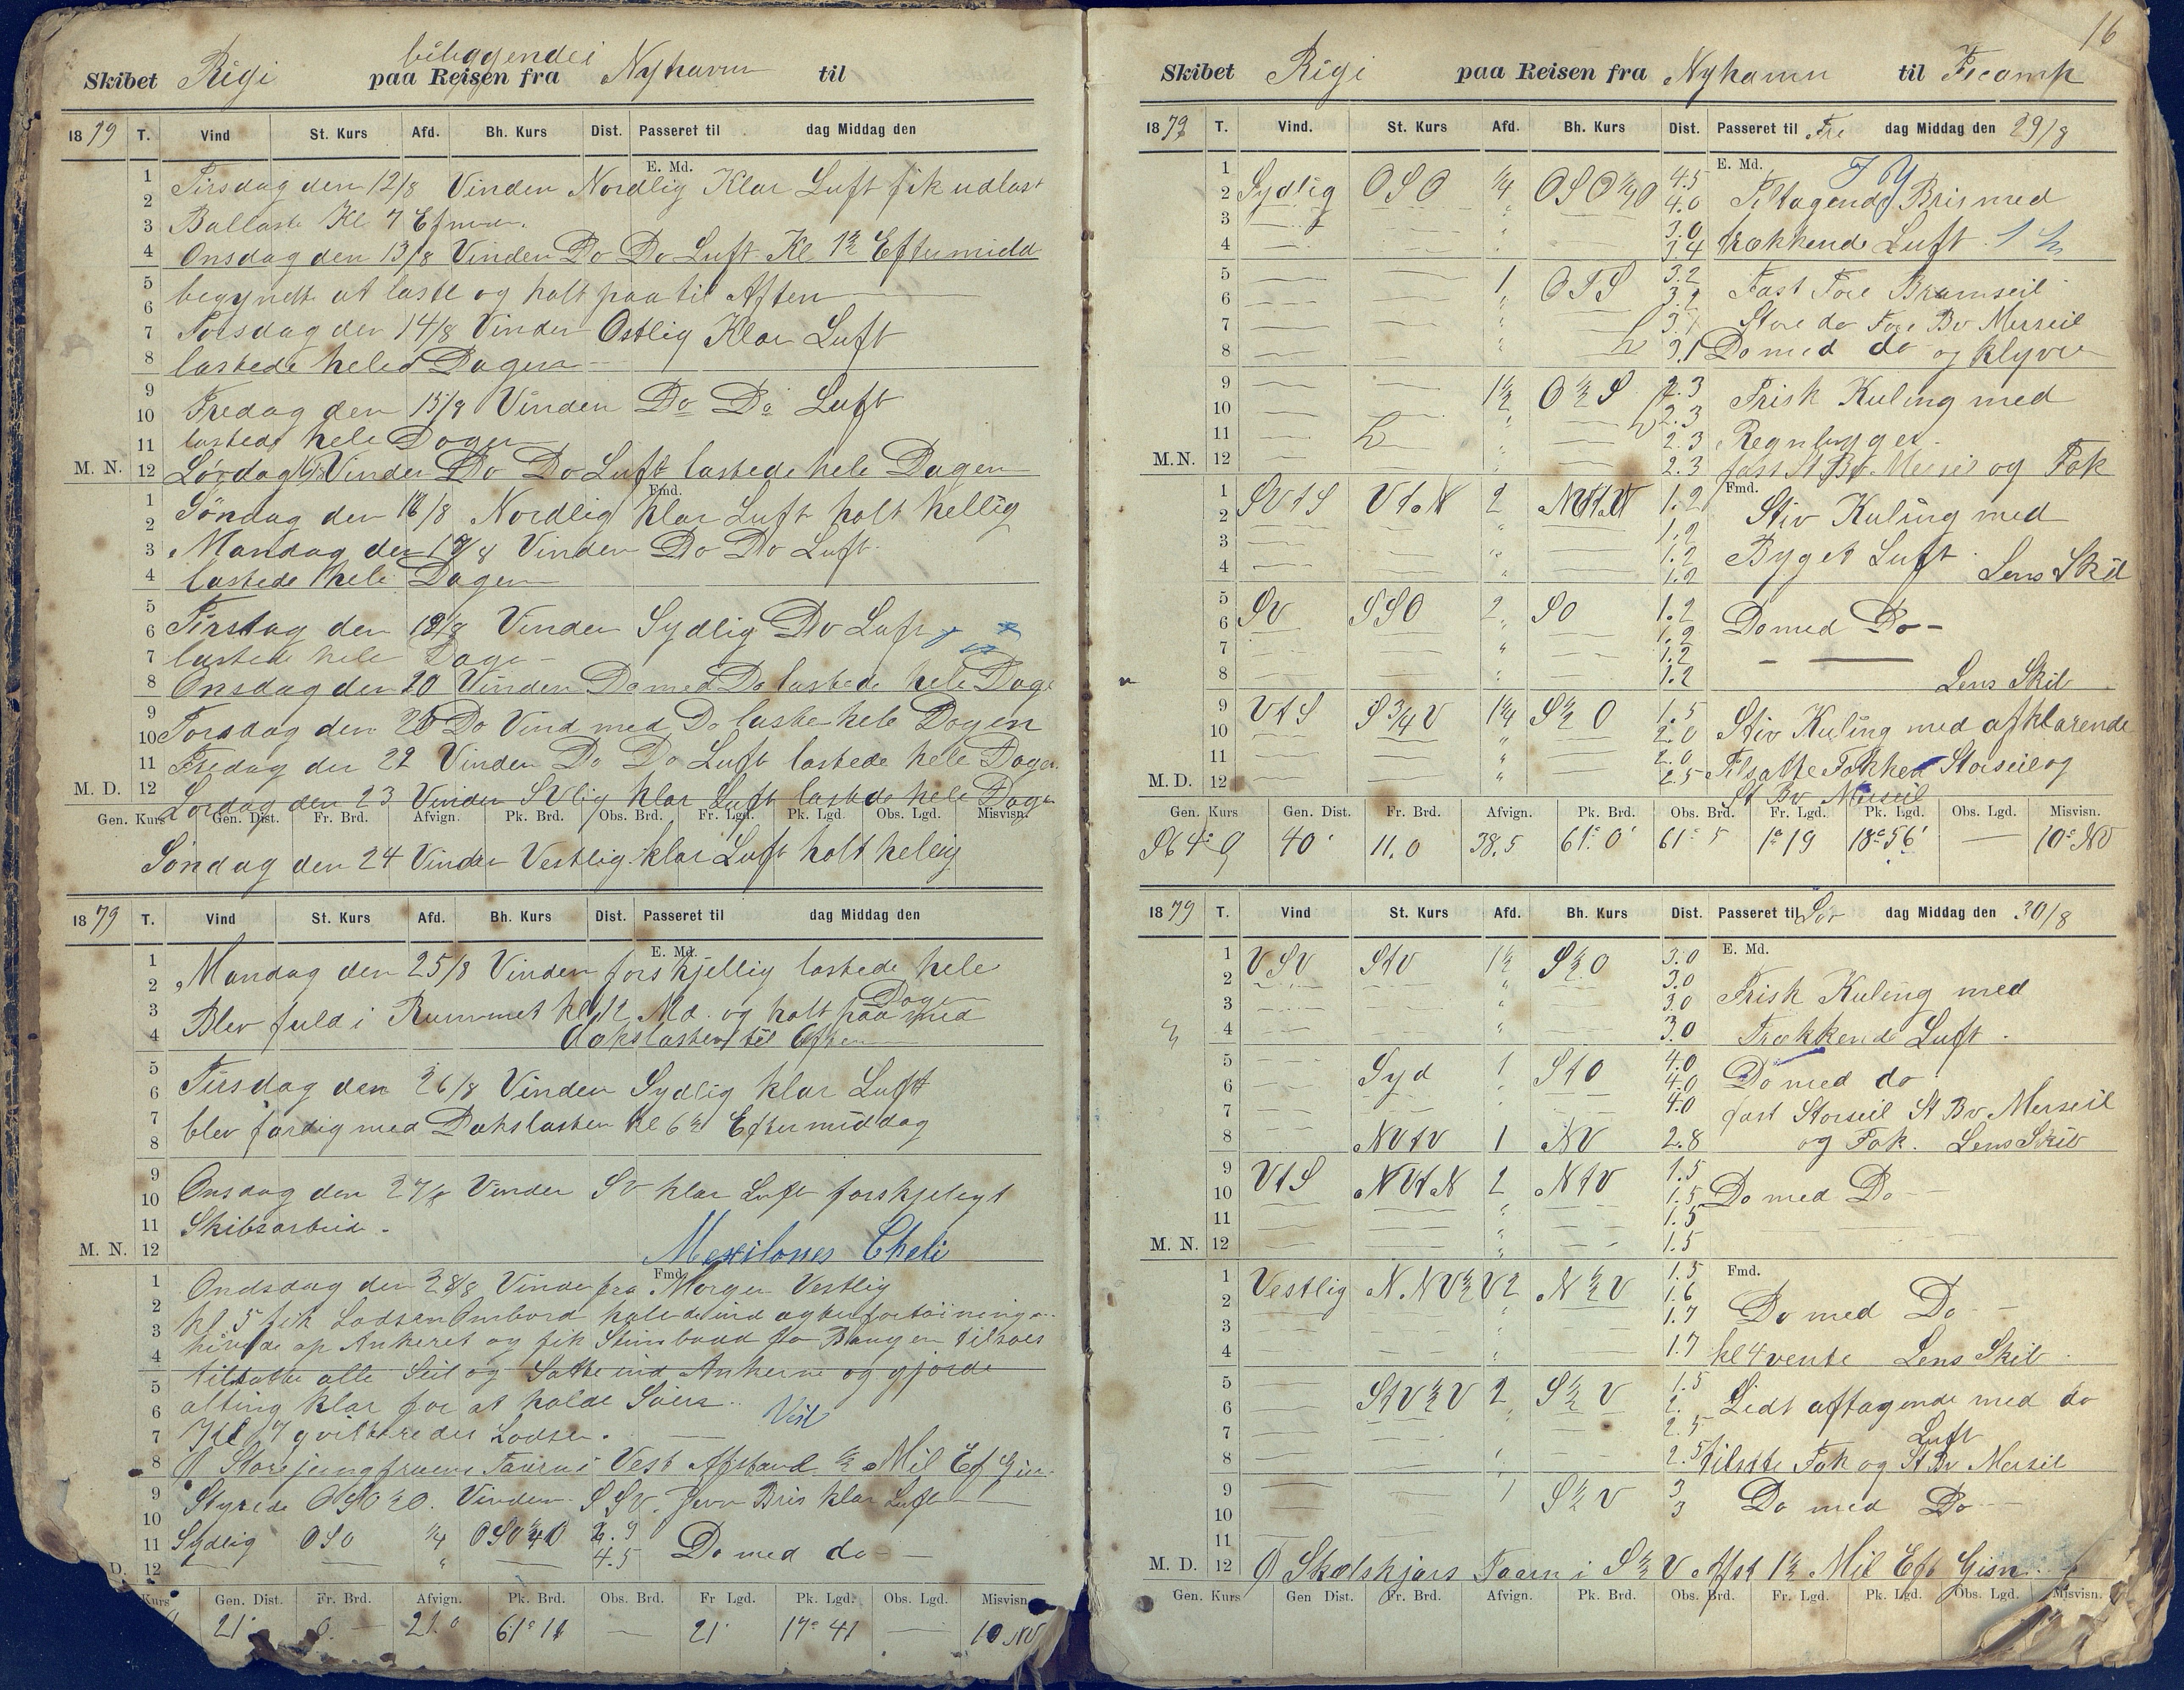 Skibet Rigi beliggende i paa Reisen fra Nyhavn til
1879 T. Vind St. Kurs Afd. Bh. Kurs Dist. Passeret til dag Middag den
E. Md.
1 Tirsdag den 12/8 Vinden Nordlig Klar Luft fik udlast
2
3 Ballast Kl 7 Efmd.
4 Onsdag den 13/8 Vinden Do Do Luft Kl 1½ Eftermidd
5 begyndt at laste og holt paa til Aften
6
7 Torsdag den 14/8 Vinden Ostlig Klar Luft
8 lastede hele Dagen
9
10 Fredag den 15/8 Vinden Do Do Luft
11 lastede hele Dagen
M. N. 12 Lørdag Vinden Do Do Luft lastede hele Dagen
Fmd.
1 Søndag den /8 Nordlig klar Luft holt hellig
2
3 Mandag den /8 Vinden Do Do Luft
4 lastede hele Dagen
5
6 Tirsdag den /8 Vinden Sydlig Do Luft
7 lastede hele Dage
8 Onsdag den 20 Vinden Do med Do lastede hele Dage
9
10 Torsdag den Do Vind med Do laste hele Dagen
11 Fredag den 22 Vinden Do Do Luft lastede hele Dagen
M. D. 12 Lørdag den 23 Vinden SVlig klar Luft lastede hele Dage
Gen. Kurs Gen. Dist. Fr. Brd. Afvign. Pk. Brd. Obs. Brd. Fr. Lgd. Pk. Lgd. Obs. Lgd. Misvisn.
Søndag den 24 Vinden Vestlig klar Luft holt helig
1879 T. Vind St. Kurs Afd. Bh. Kurs Dist. Passeret til dag Middag den
E. Md.
1 Mandag den 25/8 Vinden forskjellig lastede hele
2 Dage
3 Blev fuld i Rummet kl 12 Md. og holt paa med
4 dækslasten til Aften
5
6 Tirsdag den 26/8 Vinden Sydlig klar Luft
7
8 blev færdig med Dækslasten Kl 6½ Eftermiddag
9
10 Onsdag den 27/8 Vinden SV klar Luft forskjeligt
11 Skibsarbeid.
M. N. 12 Mexilones Cheli
Fmd.
1 Ondsdag den 28/8 Vinden fra Morgen Vestlig
2 kl 5 fik Lodsen Ombord halede ind agterfortöininge
3 hivede op Ankeret og fik Stimbaad fra Bangen tilsøes
4 tilsatte alle Seil og Satte ind Ankerne og gjorde
5 alting klar for at holde Søiers
6 Vest
7 Kl 7 qvitterede Lodsen.
8 Store jungfruens Taarn i Vest Afstand ½ Mil Ef Gis.
9 Styrede OSO½O. Vinden SSV. Jevn Bris klar Luft
10
11 Sydlig OSO ¼ OSO¼O 2.9
12 4.5 Do med do
Kurs Gen. Dist. Fr. Brd. Afvign. Pk. Brd. Obs. Brd. Fr Lgd. Pk. Lgd. Obs. Lgd. Misvisn.
21' 0. — 21.0 61°11 — 21' 17°41 — 10 NV
16
Skibet Rigi paa Reisen fra Nyhamn til Fecamp
1879 T. Vind. St. Kurs Afd. Bh. Kurs Dist. Passeret til Fre dag Middag den 29/8
E. Md.
1 Sydlig OSO ¼ OSO¼O 4.5
2 4.0 Tiltagende Bris med
3 3.0
4 3.4 trækkende Luft
5 1 OTS 3.2 Fast Fore Bramseil
6 3.2
7 Store do Fore Bv Merseil
8 3.1 Do med do og Klyver
9 1½ O½S 2.3 Frisk Kuling med
10 2.3
11 2.3 Regnbyger
M.N. 12 2.3 fast St Bv Merseil og Fok
Fmd.
1 SVtS VtN 2 1.2 Stiv Kuling med
2 1.2
3 1.2 Byget Luft
4 1.2 Lens Skib
5 SV SSO 2 SO 1.2
6 1.2 Do med Do
7 1.2
8 1.2 Lens Skib
9 VtS S¾V 1¼ S½O 1.5
10 2.0 Stiv Kuling med afklarende
11 2.0 Tilsatte Fokken Storseil og
M. D. 12 2.5 St Bv Merseil
Gen. Kurs Gen. Dist. Fr. Brd. Afvign. Pk. Brd. Obs. Brd. Fr. Lgd. Pk. Lgd. Obs. Lgd. Misvisn.
40' 11.0 38.5 61°0' 61°5 1°19 18°56' — 10° NV
1879 T. Vind St. Kurs Afd. Bh. Kurs Dist. Passeret til Lør dag Middag den 30/8
E. Md.
1 VSV StV 1½ S½O 3.0
2 3.0 Frisk Kuling med
3 3.0
4 3.0 Trækkende Luft.
5 Syd 1 StO 4.0
6 4.0 Do med do
7 4.0 fast Storseil St Bv Merseil
8 NVtV 1 NV 2.8 og Fok. Lens Skib
9 VtS NVtN 2 NtV 1.5
10 1.5 Do med Do
11 1.5
M. N. 12 1.5
Fmd.
1 Vestlig N.NV½V 2 N½V 1.5
2 1.6 Do med Do
3 1.7
4 1.7 kl 4 vente Lens Skib
5 StV½V 2 S½V 1.5
6 2. Lidt aftagende med do
7 2.5 Luft
8 2.5 tilsatte Fok og St Bv Merseil
9 1 S½V 3
10 3 Do med Do
11
M. D. 12 Skælskjærs Taarn i S½V Afst 1½ Mil Eft Gisn.
Gen. Kurs Gen Dist. Fr. Brd. Afvign. Pk. Brd. Obs. Brd. Fr. Lgd. Pk. Lgd. Obs. Lgd. Misvisn.